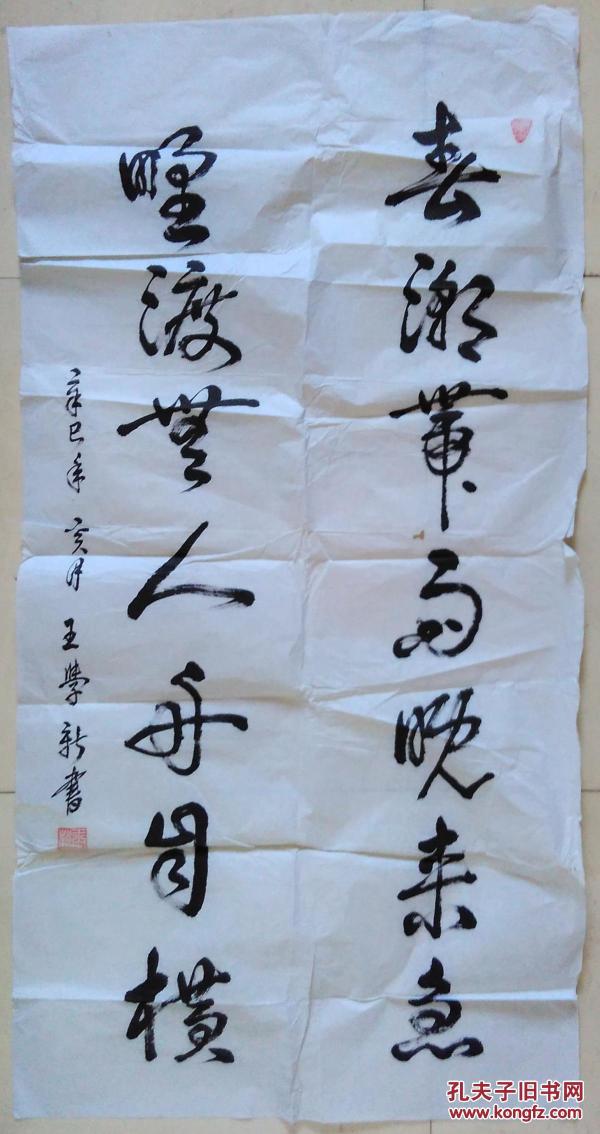 春潮帶雨晚来急
野渡無人舟自横
辛巳年 亥月 王學新書
孔夫子旧书网
www.kongfz.com